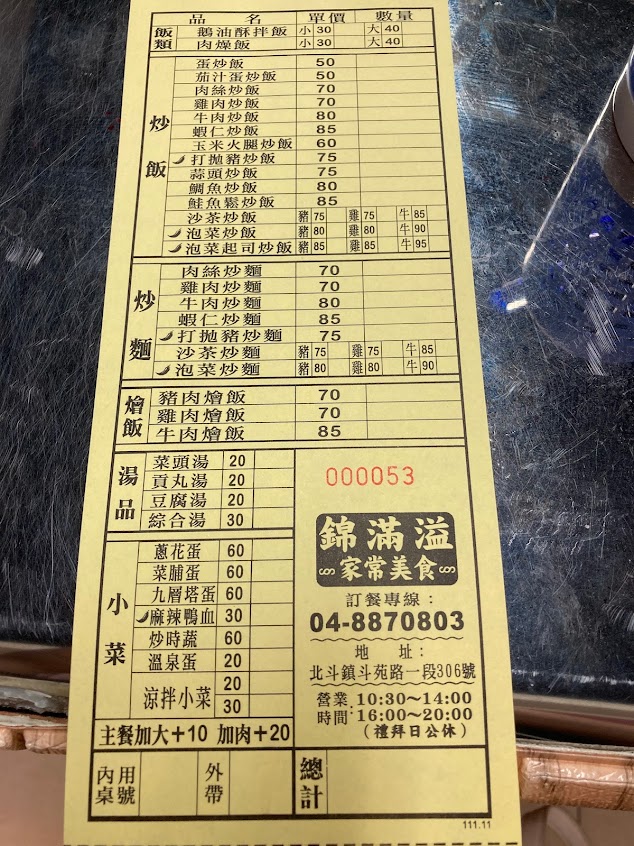 品名 單價 數量
飯類
鵝油酥拌飯 小30 大40
肉燥飯 小30 大40
炒飯
蛋炒飯 50
茄汁蛋炒飯 50
肉絲炒飯 70
雞肉炒飯 70
牛肉炒飯 80
蝦仁炒飯 85
玉米火腿炒飯 60
打拋豬炒飯 75
蒜頭炒飯 75
鯛魚炒飯 80
鮭魚鬆炒飯 85
沙茶炒飯 豬75 雞75 牛85
泡菜炒飯 豬80 雞80 牛90
泡菜起司炒飯 豬85 雞85 牛95
炒麵
肉絲炒麵 70
雞肉炒麵 70
牛肉炒麵 80
蝦仁炒麵 85
打拋豬炒麵 75
沙茶炒麵 豬75 雞75 牛85
泡菜炒麵 豬80 雞80 牛90
燴飯
豬肉燴飯 70
雞肉燴飯 70
牛肉燴飯 85
湯品
菜頭湯 20
貢丸湯 20
豆腐湯 20
綜合湯 30
小菜
蔥花蛋 60
菜脯蛋 60
九層塔蛋 60
麻辣鴨血 30
炒時蔬 60
溫泉蛋 20
涼拌小菜 20
30
主餐加大+10 加肉+20
000053
錦滿溢
家常美食
訂餐專線：
04-8870803
地址：
北斗鎮斗苑路一段306號
營業時間:
10:30～14:00
16:00～20:00
(禮拜日公休)
內用桌號
外帶
總計
111.11